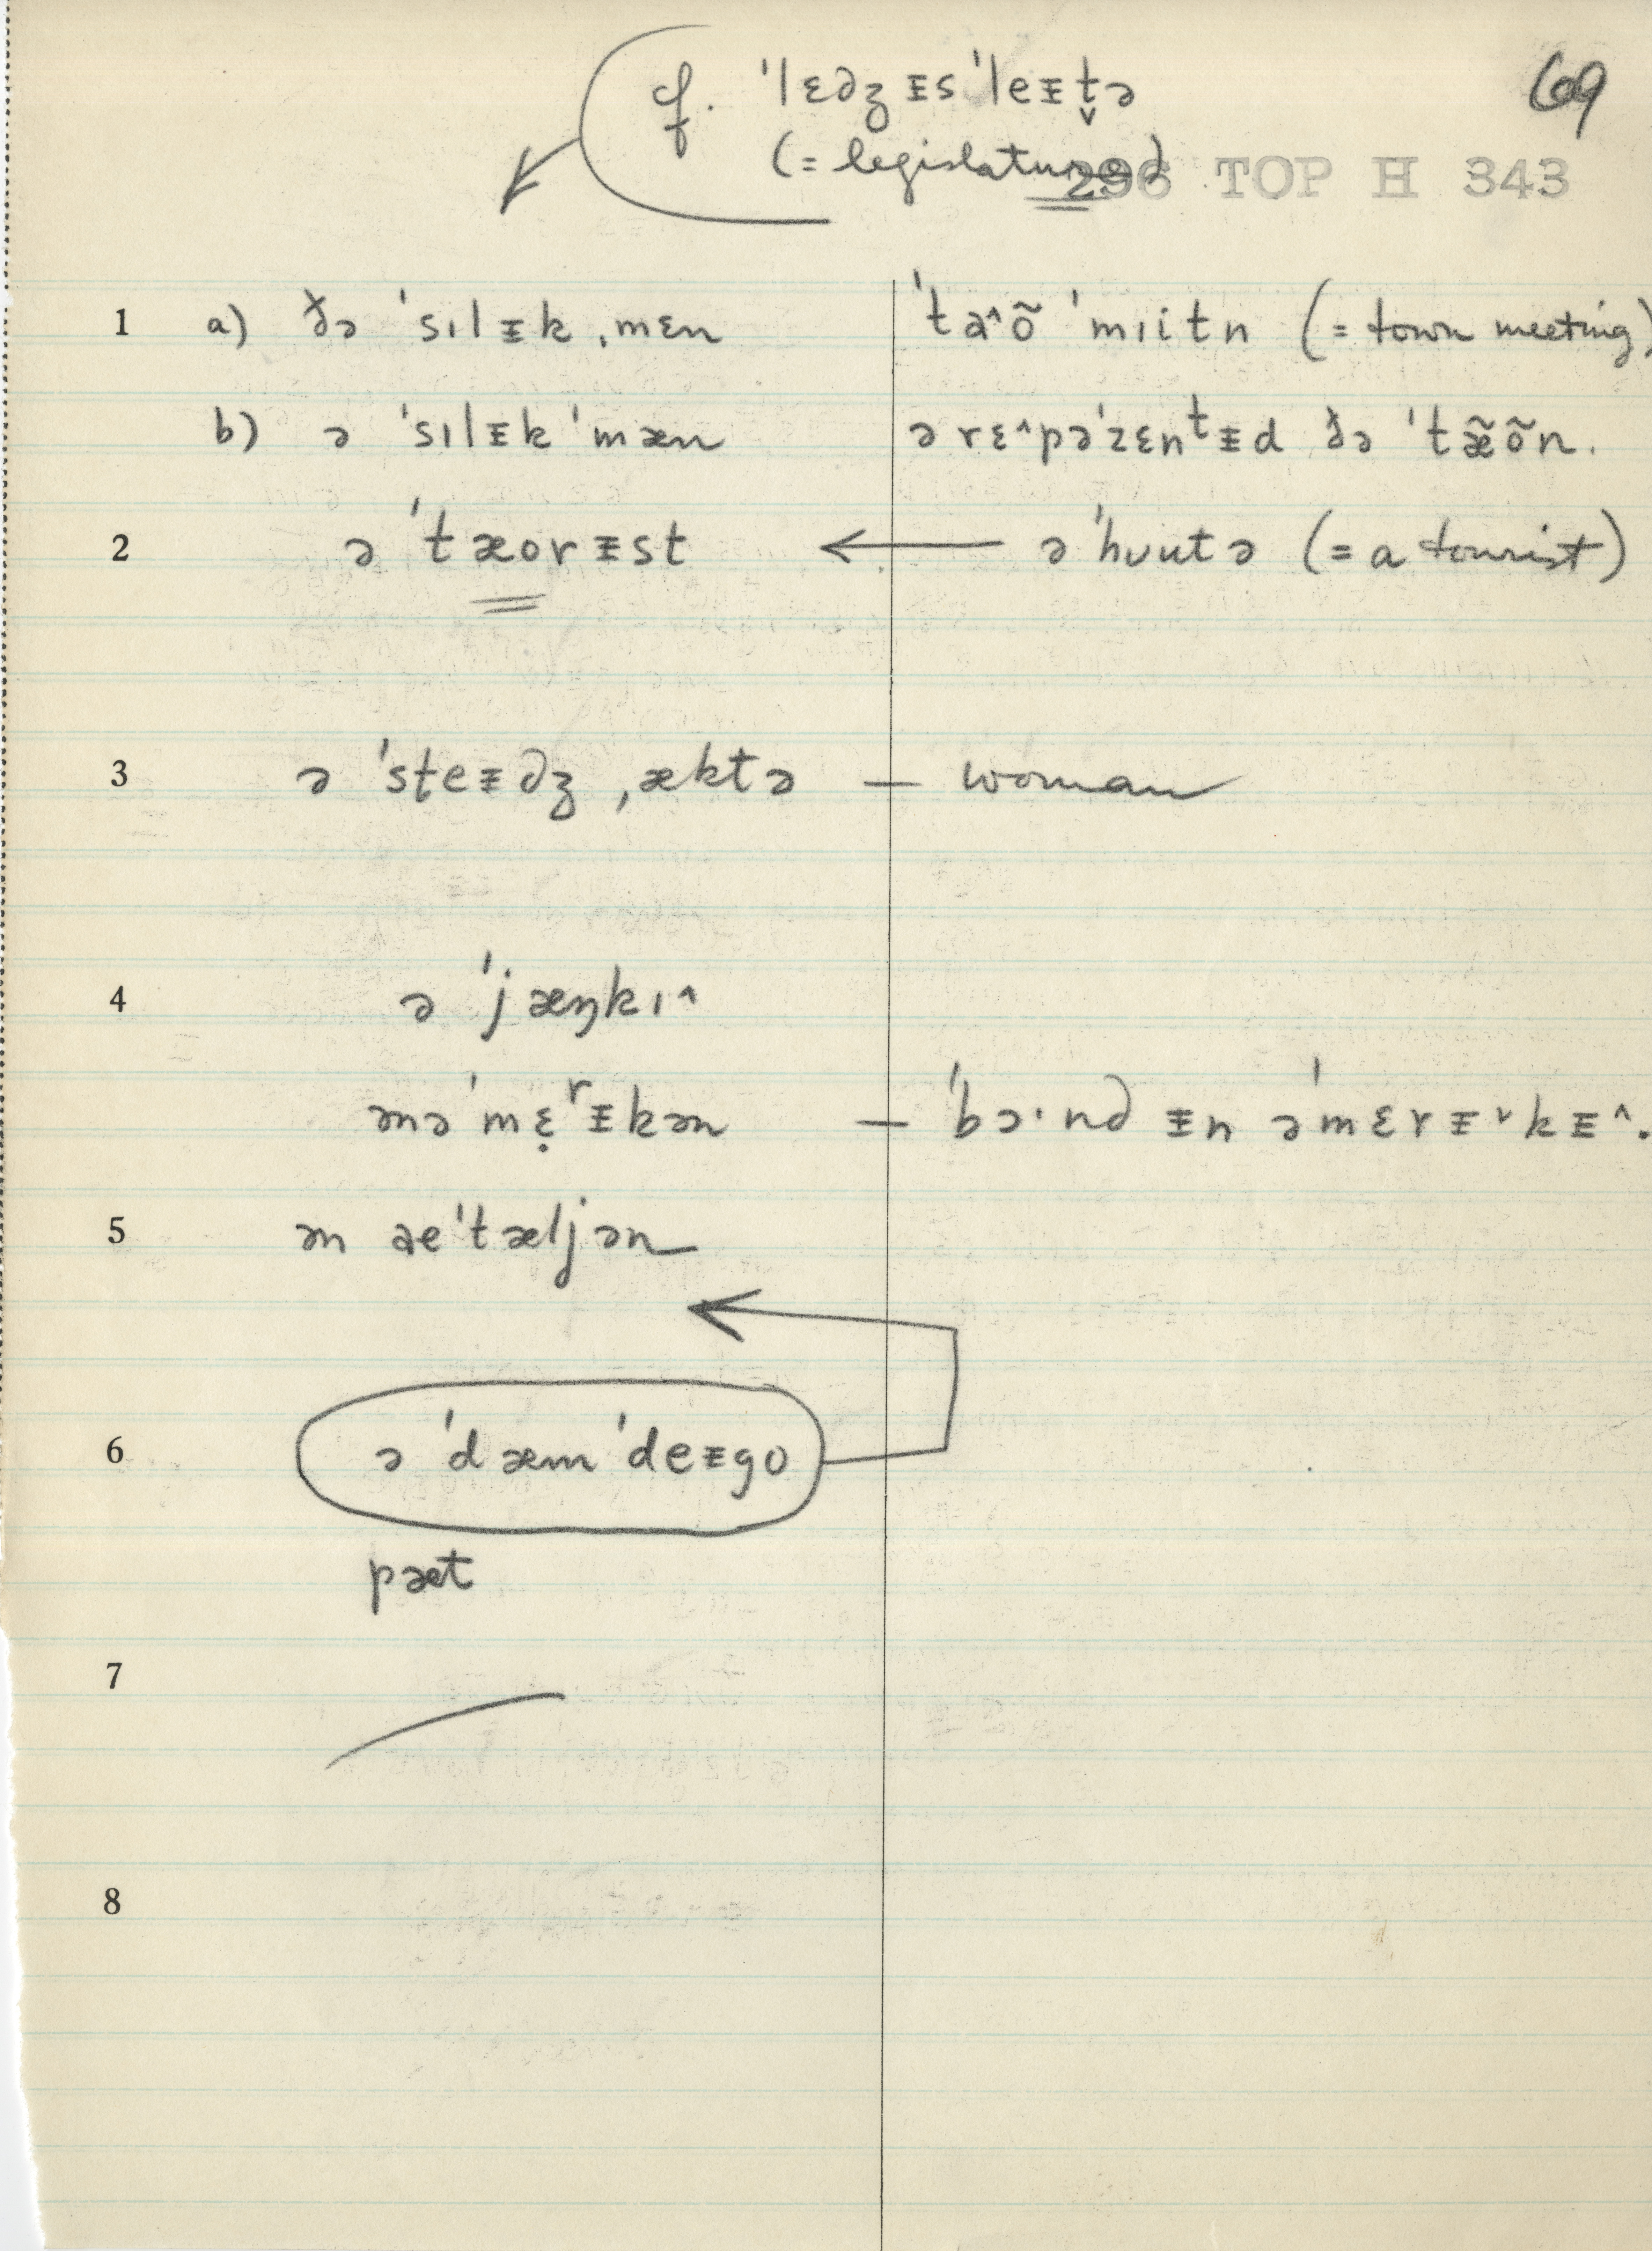 cf. ˈlɛdʒᵻsˈleᵻt̬ə
69
(= legislature)
296 TOP H 343
1 a) ðə ˈsɪlᵻkˌmɛn ˈta^õ ˈmɪitn (= town meeting)
b) ə ˈsɪlᵻkˈmæn ə rɛ^pəˈzɛnᵗᵻd ðə ˈtæ̃õn.
2 ə ˈtæorᵻst ← əˈhʊutə (= a tourist)
3 ə ˈsteᵻdʒˌæktə — woman
4 ə ˈjæŋkɪ^
ənəˈmɛ̣ʳᵻkən — ˈbɔ·nd ᵻn əˈmɛrᵻˇkᵻ^.
5 ən aeˈtæljən
6 ə ˈdæm ˈdeᵻgo
pæt
7
8